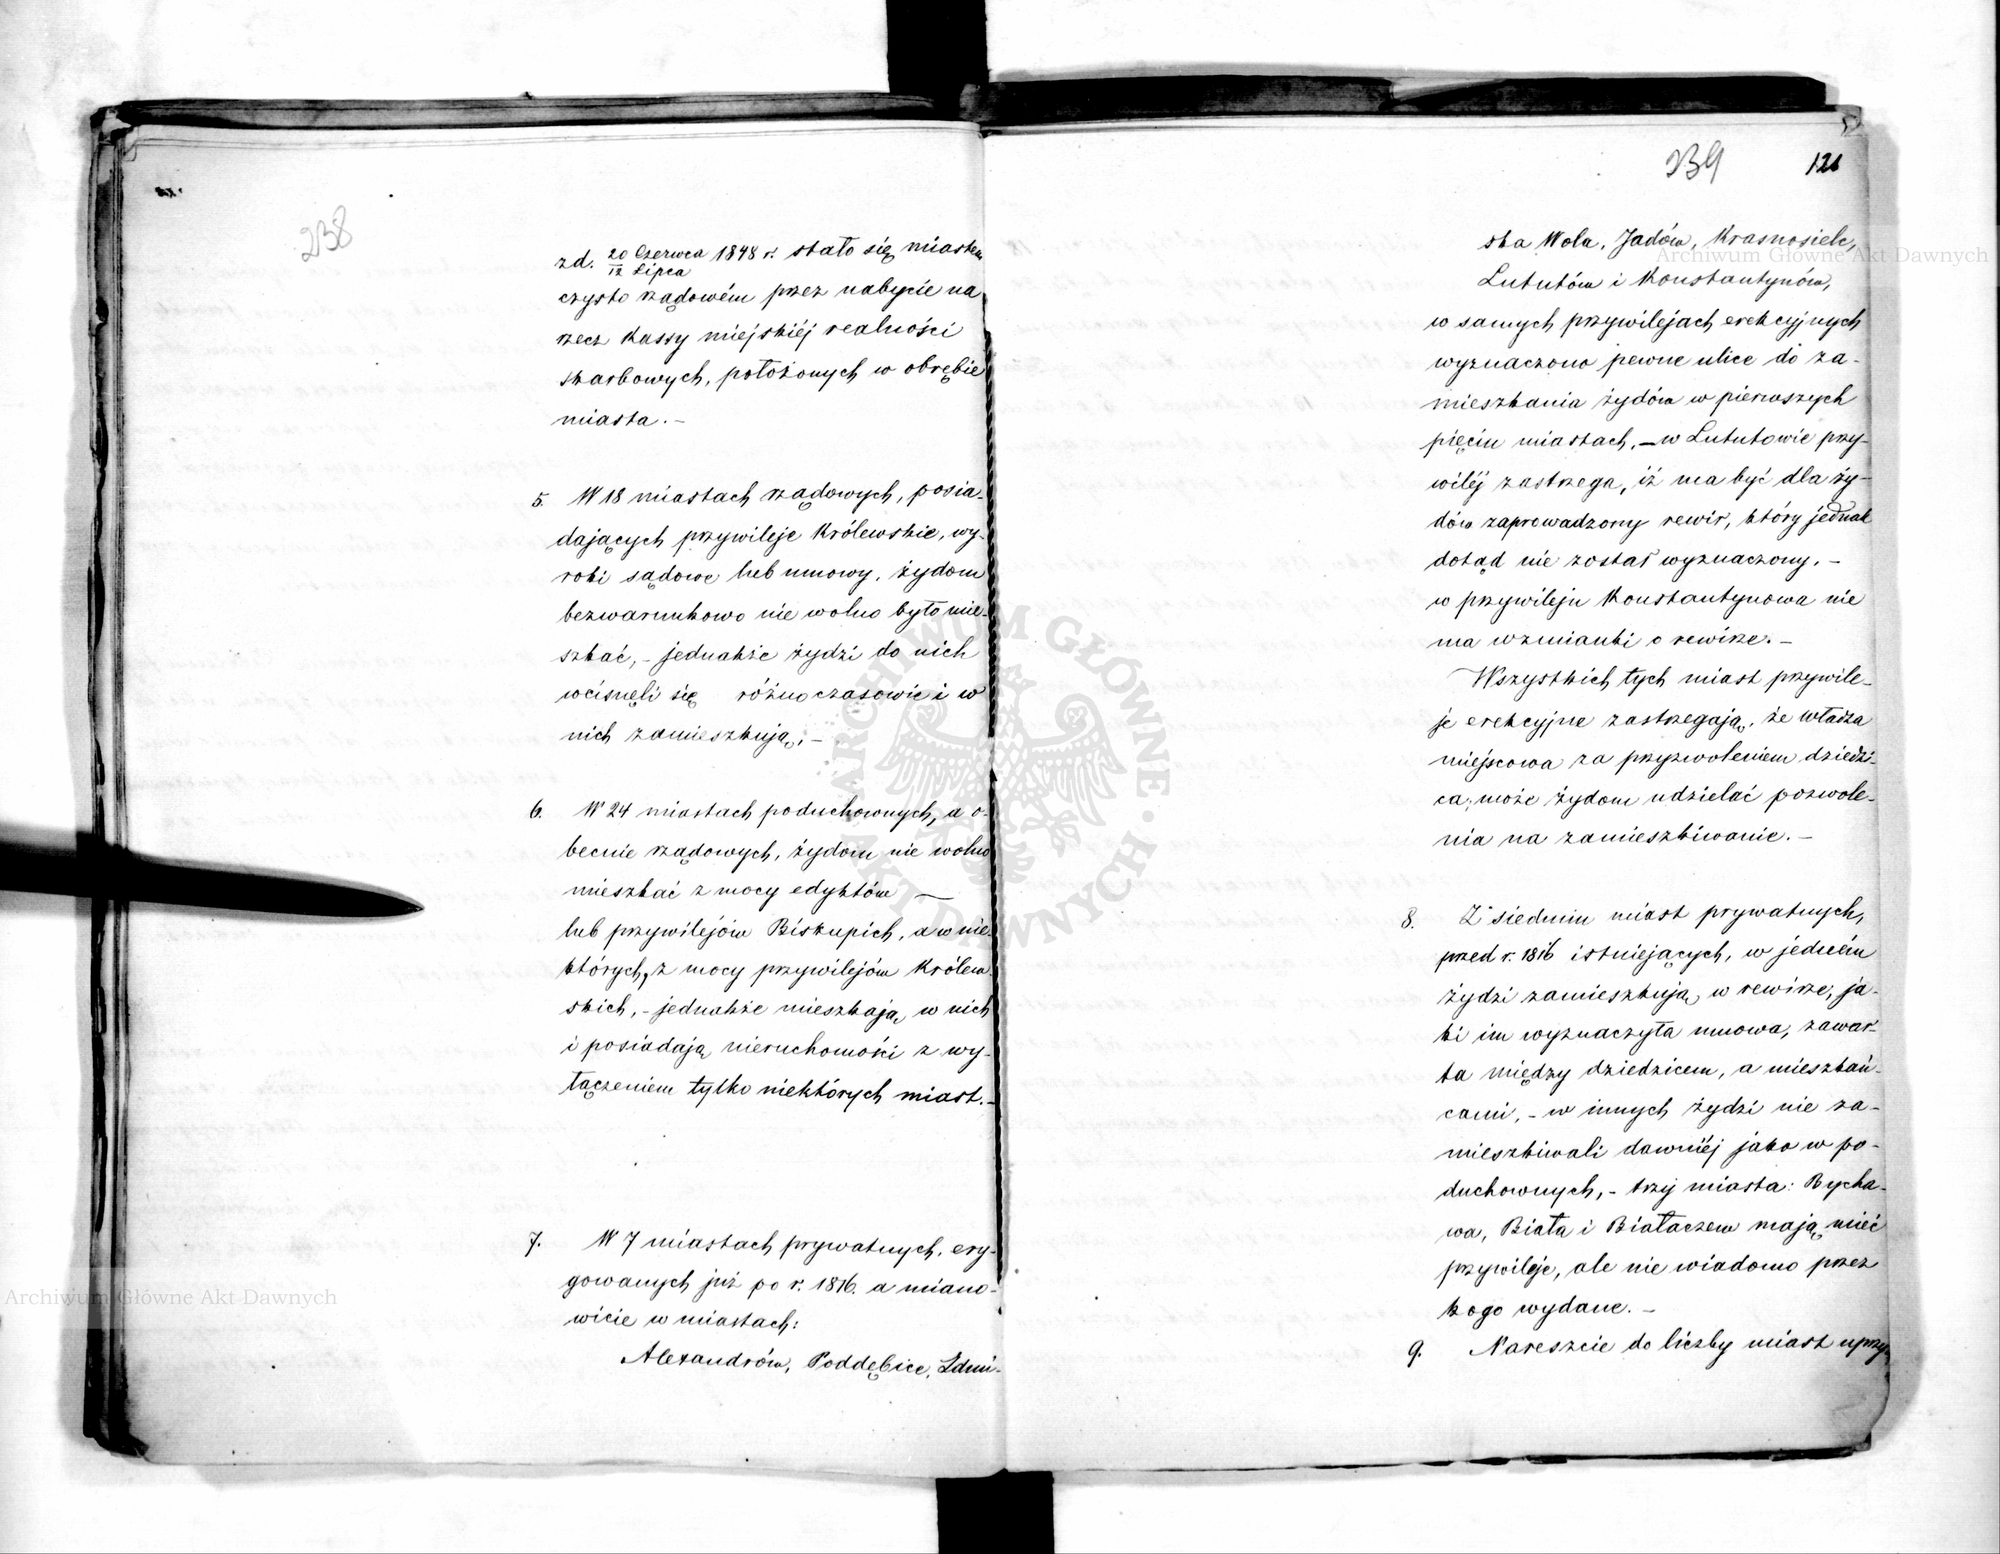 238
zd. 20 Czerwca 1848 r. stało się miastem
12 Lipca
czysto rządowém przez nabycie na
rzecz Kassy miejskiéj realności
skarbowych, położonych w obrębie
miasta. –
5. W 18 miastach rządowych, posia-
dających przywileje Królewskie, wy-
roki sądowe lub umowy, żydom
bezwarunkowo nie wolno było mie-
szkać, – jednakże żydzi do nich
wcisnęli się różnoczasowie i w
nich zamieszkują. –
6. W 24 miastach poduchownych, a o-
becnie rządowych, żydom nie wolno
mieszkać z mocy edyktów —
lub przywilejów Biskupich, a w nie-
których, z mocy przywilejów Królew-
skich, – jednakże mieszkają w nich
i posiadają nieruchomości z wy-
łączeniem tylko niektórych miast. –
7. W 7 miastach prywatnych, ery-
gowanych już po r. 1816. a miano-
wicie w miastach:
Alexandrów, Poddębice, Zduń-
239 121
ska Wola, Jadów, Krasnosielc,
Lututów i Konstantynów,
w samych przywilejach erekcyjnych
wyznaczono pewne ulice do za-
mieszkania żydów w pierwszych
pięciu miastach, – w Lututowie przy-
wiléj zastrzega, iż ma być dla ży-
dów zaprowadzony rewir, który jednak
dotąd nie został wyznaczony. –
w przywileju Konstantynowa nie
ma wzmianki o rewirze. –
Wszystkich tych miast przywile-
je erekcyjne zastrzegają, że władza
miejscowa za przyzwoleniem dziedzi-
ca, może żydom udzielać pozwole-
nia na zamieszkiwanie. –
8. Z siedmiu miast prywatnych,
przed r. 1816 istniejących, w jedném
żydzi zamieszkują w rewirze, ja-
ki im wyznaczyła umowa, zawar-
ta między dziedzicem, a mieszkań-
cami, – w innych żydzi nie za-
mieszkiwali dawniéj jako w po-
duchownych, – trzy miasta: Bycha-
wa, Biała i Białaczew mają mieć
przywileje, ale nie wiadomo przez
kogo wydane. –
9. Nareszcie do liczby miast uprzy-
Archiwum Główne Akt Dawnych
Archiwum Główne Akt Dawnych
ARCHIWUM GŁÓWNE AKT DAWNYCH